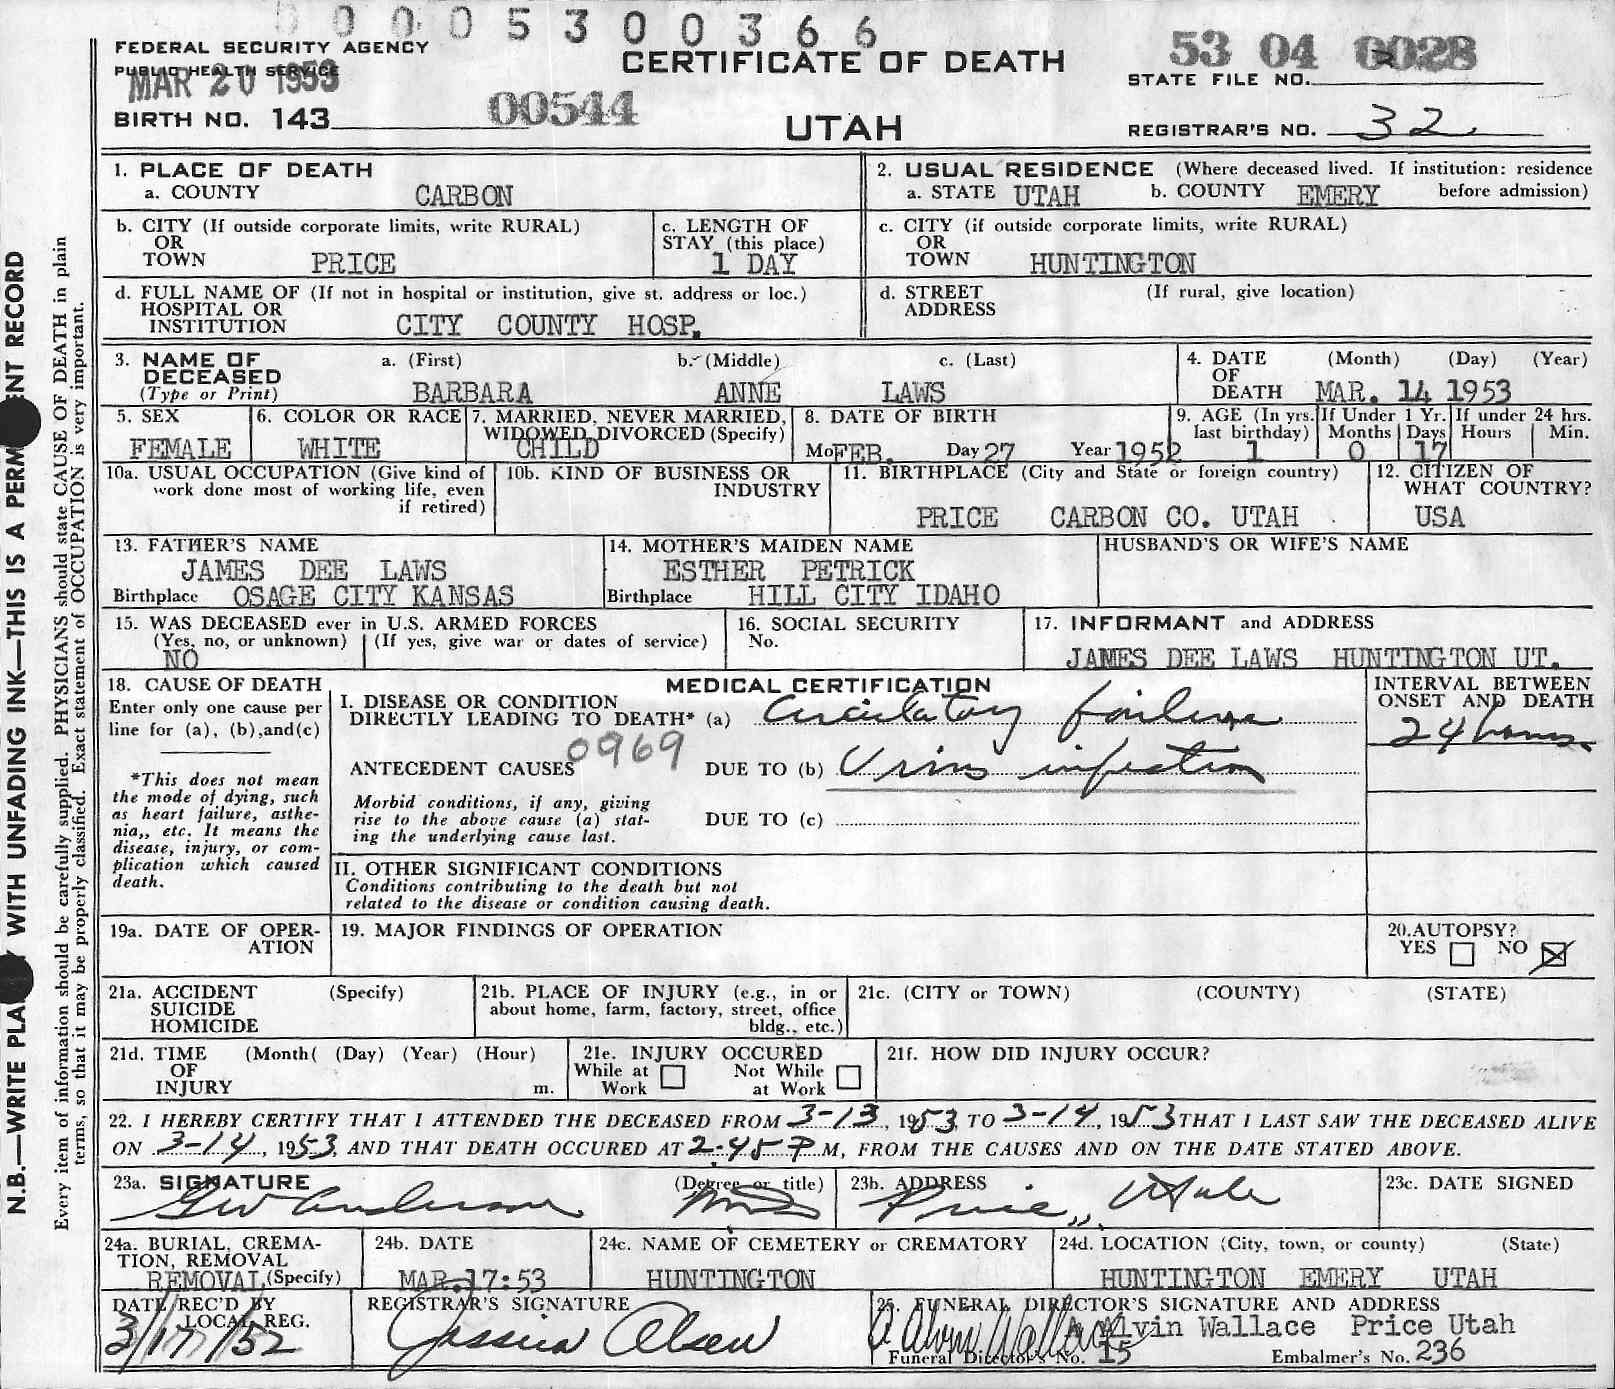 0 0 0 0 5 3 0 0 3 6 6
FEDERAL SECURITY AGENCY
PUBLIC HEALTH SERVICE
MAR 20 1953
CERTIFICATE OF DEATH
53 04 0028
STATE FILE NO.
BIRTH NO. 143
00544
UTAH
REGISTRAR'S NO. 32
1. PLACE OF DEATH
a. COUNTY CARBON
2. USUAL RESIDENCE (Where deceased lived. If institution: residence
a. STATE UTAH b. COUNTY EMERY before admission)
b. CITY (If outside corporate limits, write RURAL)
OR
TOWN PRICE
c. LENGTH OF
STAY (this place)
1 DAY
c. CITY (if outside corporate limits, write RURAL)
OR
TOWN HUNTINGTON
d. FULL NAME OF (If not in hospital or institution, give st. address or loc.)
HOSPITAL OR
INSTITUTION CITY COUNTY HOSP.
d. STREET (If rural, give location)
ADDRESS
3. NAME OF a. (First) b. (Middle) c. (Last)
DECEASED
(Type or Print) BARBARA ANNE LAWS
4. DATE (Month) (Day) (Year)
OF
DEATH MAR. 14 1953
5. SEX
FEMALE
6. COLOR OR RACE
WHITE
7. MARRIED, NEVER MARRIED,
WIDOWED, DIVORCED (Specify)
CHILD
8. DATE OF BIRTH
Mo FEB. Day 27 Year 1952
9. AGE (In yrs. If Under 1 Yr. If under 24 hrs.
last birthday) Months Days Hours Min.
1 0 17
10a. USUAL OCCUPATION (Give kind of
work done most of working life, even
if retired)
10b. KIND OF BUSINESS OR
INDUSTRY
11. BIRTHPLACE (City and State or foreign country)
PRICE CARBON CO. UTAH
12. CITIZEN OF
WHAT COUNTRY?
USA
13. FATHER'S NAME
JAMES DEE LAWS
Birthplace OSAGE CITY KANSAS
14. MOTHER'S MAIDEN NAME
ESTHER PETRICK
Birthplace HILL CITY IDAHO
HUSBAND'S OR WIFE'S NAME
15. WAS DECEASED ever in U.S. ARMED FORCES
(Yes, no, or unknown) (If yes, give war or dates of service)
NO
16. SOCIAL SECURITY
No.
17. INFORMANT and ADDRESS
JAMES DEE LAWS HUNTINGTON UT.
18. CAUSE OF DEATH
Enter only one cause per
line for (a), (b),and(c)
*This does not mean
the mode of dying, such
as heart failure, asthe-
nia,, etc. It means the
disease, injury, or com-
plication which caused
death.
MEDICAL CERTIFICATION
I. DISEASE OR CONDITION
DIRECTLY LEADING TO DEATH* (a) Circulatory failure
0969
ANTECEDENT CAUSES DUE TO (b) Virus infection
Morbid conditions, if any, giving
rise to the above cause (a) stat-
ing the underlying cause last.
DUE TO (c)
II. OTHER SIGNIFICANT CONDITIONS
Conditions contributing to the death but not
related to the disease or condition causing death.
INTERVAL BETWEEN
ONSET AND DEATH
24 hours.
19a. DATE OF OPER-
ATION
19. MAJOR FINDINGS OF OPERATION
20.AUTOPSY?
YES NO
21a. ACCIDENT (Specify)
SUICIDE
HOMICIDE
21b. PLACE OF INJURY (e.g., in or
about home, farm, factory, street, office
bldg., etc.)
21c. (CITY or TOWN) (COUNTY) (STATE)
21d. TIME (Month( (Day) (Year) (Hour)
OF
INJURY m.
21e. INJURY OCCURED
While at Not While
Work at Work
21f. HOW DID INJURY OCCUR?
22. I HEREBY CERTIFY THAT I ATTENDED THE DECEASED FROM 3-13, 1953, TO 3-14, 1953 THAT I LAST SAW THE DECEASED ALIVE
ON 3-14, 1953, AND THAT DEATH OCCURED AT 2:45 P M, FROM THE CAUSES AND ON THE DATE STATED ABOVE.
23a. SIGNATURE (Degree or title)
GW Anderson MD
23b. ADDRESS
Price, Utah
23c. DATE SIGNED
24a. BURIAL, CREMA-
TION, REMOVAL
REMOVAL (Specify)
24b. DATE
MAR. 17:53
24c. NAME OF CEMETERY or CREMATORY
HUNTINGTON
24d. LOCATION (City, town, or county) (State)
HUNTINGTON EMERY UTAH
DATE REC'D BY
LOCAL REG.
3/17/52
REGISTRAR'S SIGNATURE
Jessica Olsen
25. FUNERAL DIRECTOR'S SIGNATURE AND ADDRESS
A Alvin Wallace
A Alvin Wallace Price Utah
Funeral Director's No. 15 Embalmer's No. 236
N.B.—WRITE PLA Y WITH UNFADING INK—THIS IS A PERM ENT RECORD
Every item of information should be carefully supplied. PHYSICIANS should state CAUSE OF DEATH in plain
terms, so that it may be properly classified. Exact statement of OCCUPATION is very important.